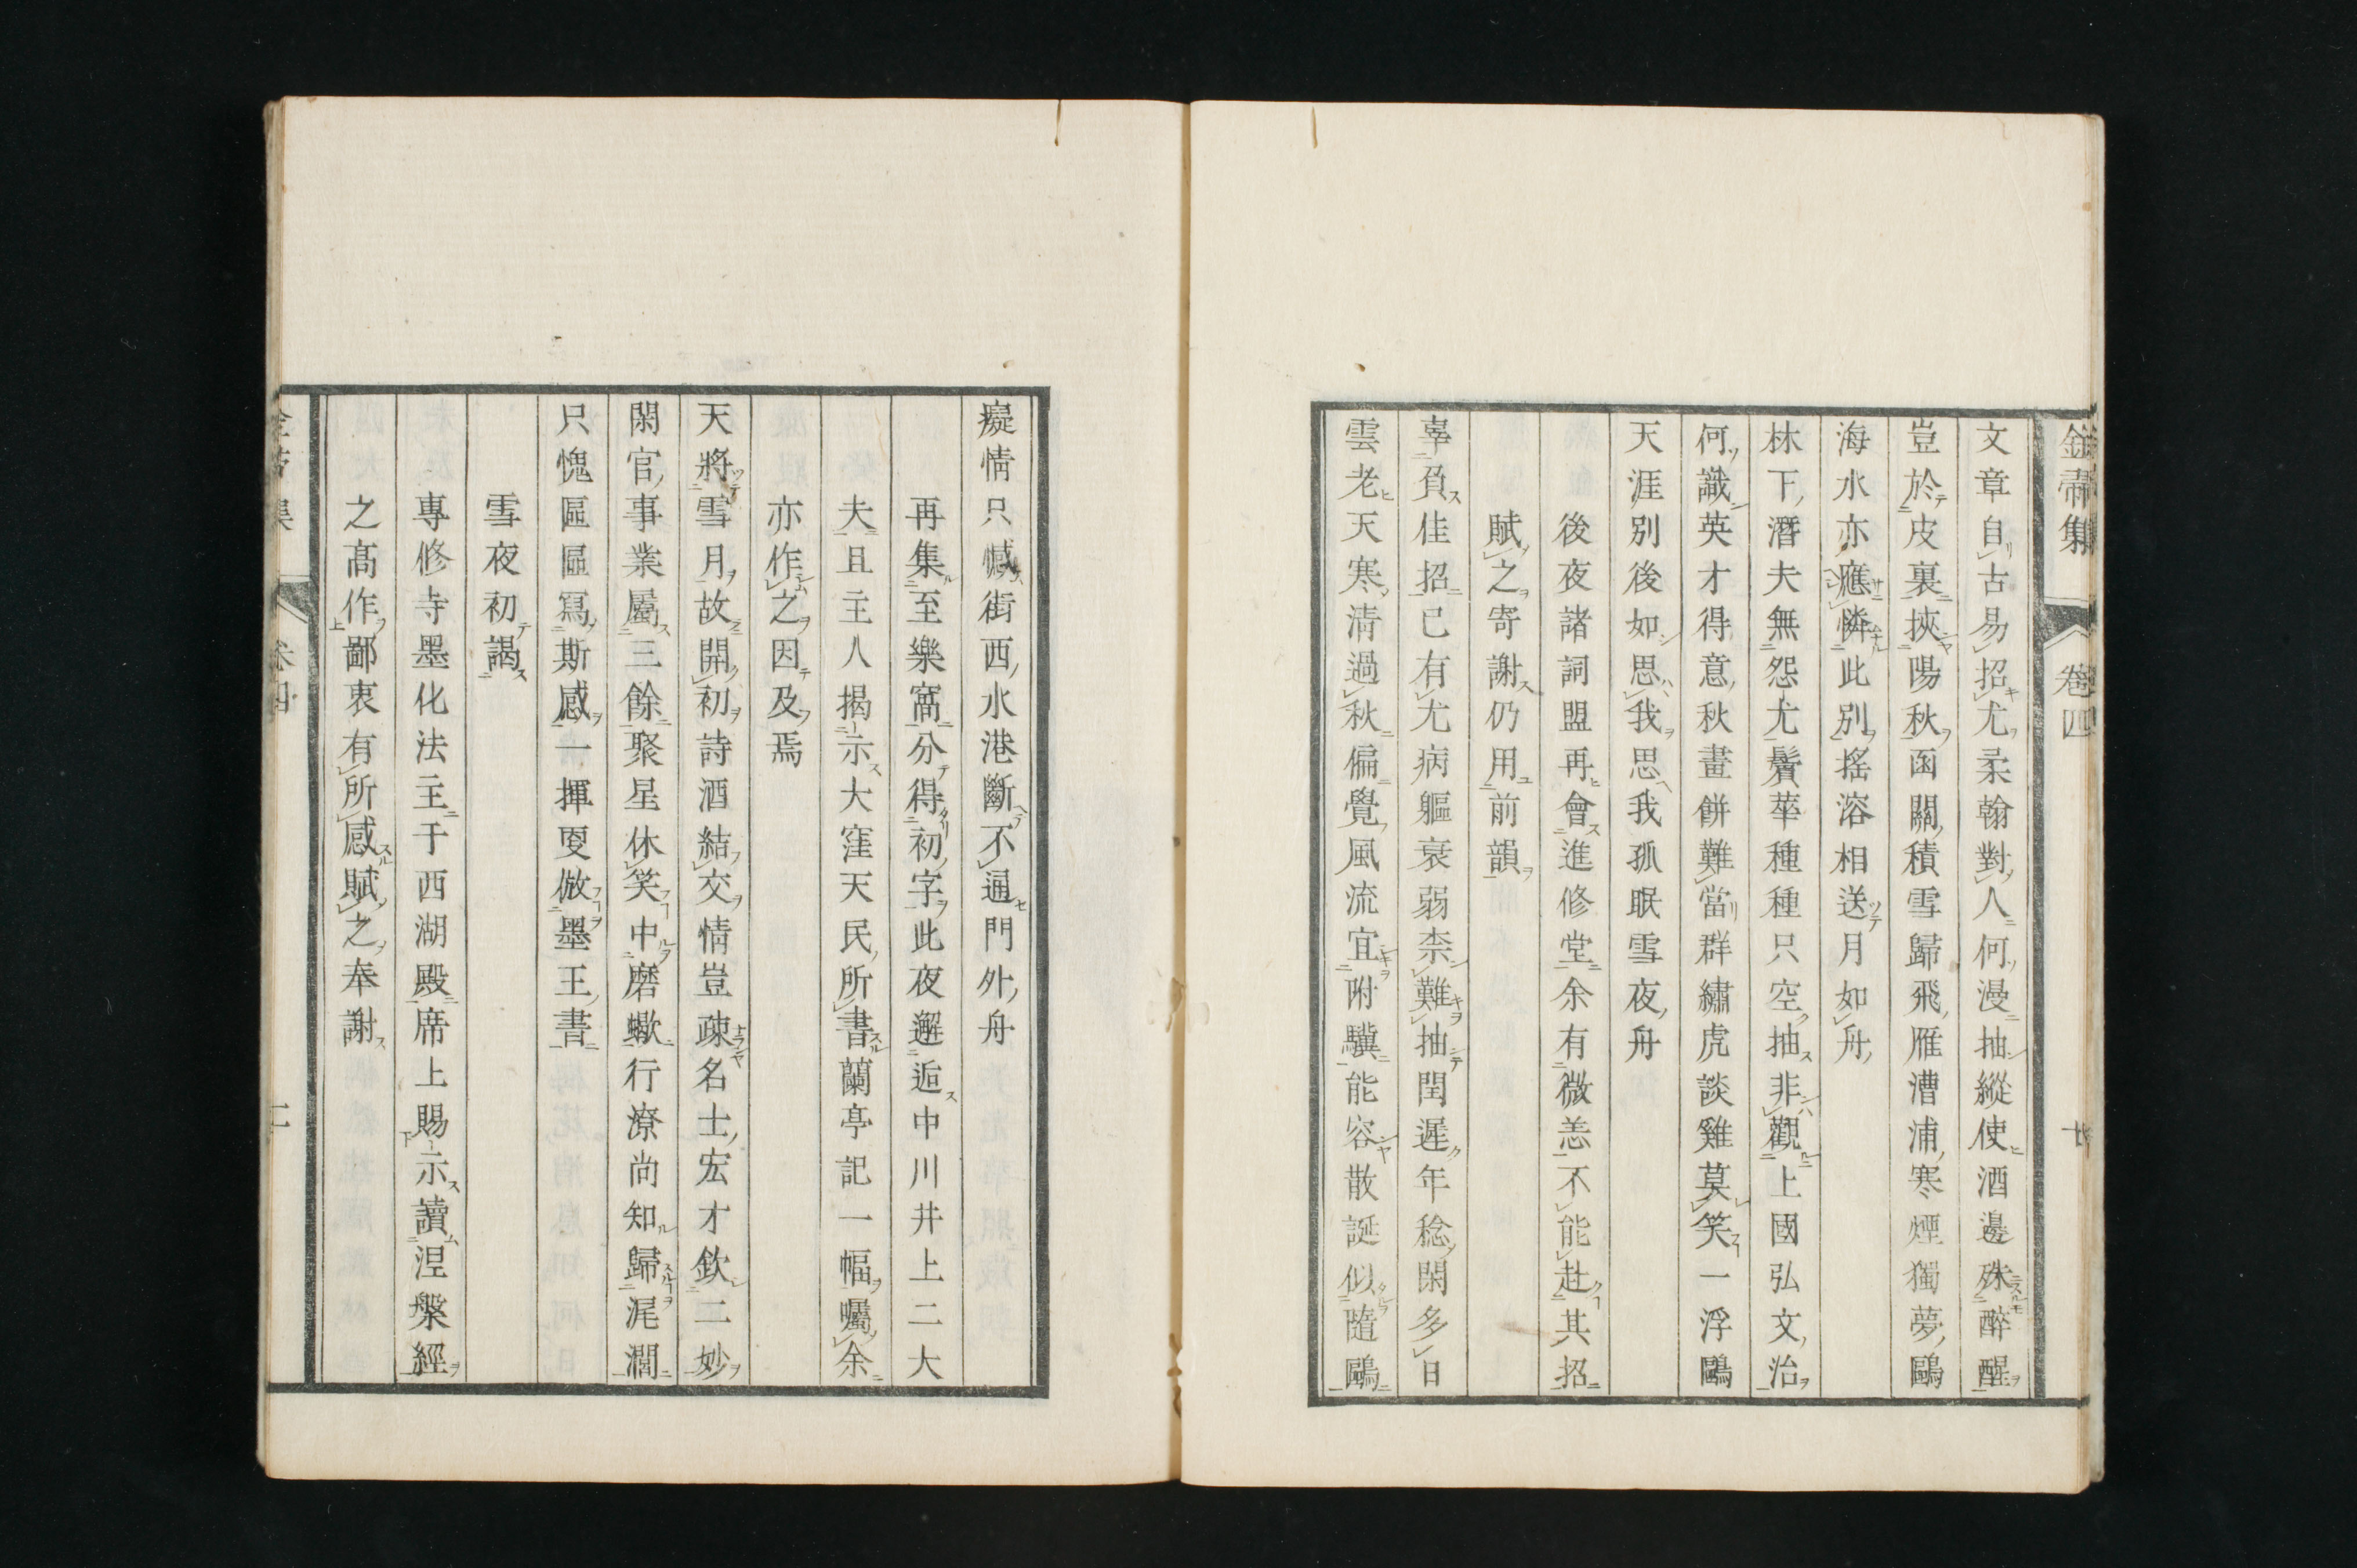 金帚集 卷四
文章自古易招尤柔翰對人何漫抽縱使酒邊殊醉醒
豈於皮裏挾陽秋函關積雪歸飛雁漕浦寒煙獨夢鷗
海水亦應憐此別搖溶相送月如舟
林下潛夫無怨尤鬢華種種只空抽非觀上國弘文治
何識英才得意秋畫餅難當群繡虎談雞莫笑一浮鷗
天涯別後如思我思我孤眠雪夜舟
後夜諸詞盟再會進修堂余有微恙不能赴其招
賦之寄謝仍用前韻
辜負佳招已有尤病軀衰弱柰難抽閏遲年稔閑多日
雲老天寒清過秋偏覺風流宜附驥能容散誕似隨鷗
癡情只憾街西水港斷不通門外舟
再集至樂窩分得初字此夜邂逅中川井上二大
夫且主人揭示大窪天民所書蘭亭記一幅囑余
亦作之因及焉
天將雪月故開初詩酒結交情豈疎名士宏才欽二妙
閑官事業屬三餘聚星休笑中磨蠍行潦尚知歸尾濶
只愧區區寫斯感一揮叓倣墨王書
雪夜初謁
專修寺墨化法主于西湖殿席上賜示讀涅槃經
之高作鄙衷有所感賦之奉謝